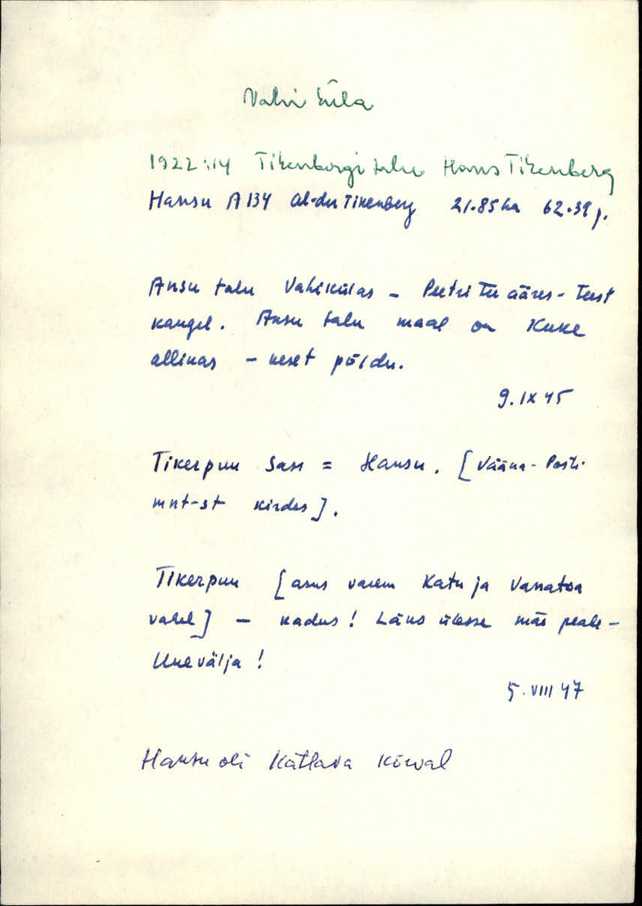 Vahi küla
1922:14 Tikenbergi talu Hans Tikenberg
Hansu A 134 Al-der Tikenberg 21.85 ha 62.39 r.
Ansu talu Vahikülas - Peetri Tee ääres - teist
kangel. Ansu talu maal on Kuke
allikas - keset põldu.
9.IX 45
Tikerpuu Sass = Hansu. [Vääna-Posti
mnt-st kirdes].
Tikerpuu [asus varem Katu ja Vanatoa
vahel] - kadus! Läks ülesse mäe peale -
Unevälja!
5.VIII 47
Hansu oli Kätlava kõrval